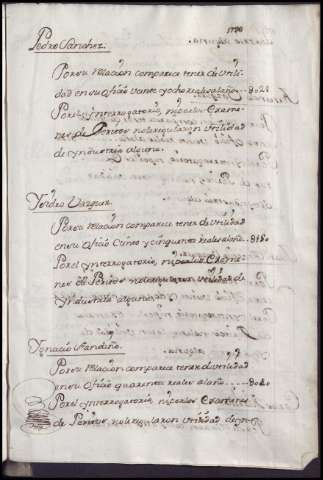 Pedro Sanchez.
Por su relazion comparece tener de utili
dad en su ofizio veinte y ocho reales al año
Por el ynterrogatorio, ni por el Exame
n de Peritos no le regularon utilidad
de yndustria alguna.
Ysidro Vazquez.
Por su relazion comparece tener de utilidad
en su ofizio ciento y cinquenta reales al año
Por el ynterrogatorio, ni por el Exame
n de Peritos no le regularon utilidad de
yndustria alguna
Ygnacio Fandiño.
Por su relazion comparece tener de utilidad
en su ofizio quarenta reales al año
Por el ynterrogatorio, ni por el Examen
de Peritos, no le regularon utilidad de